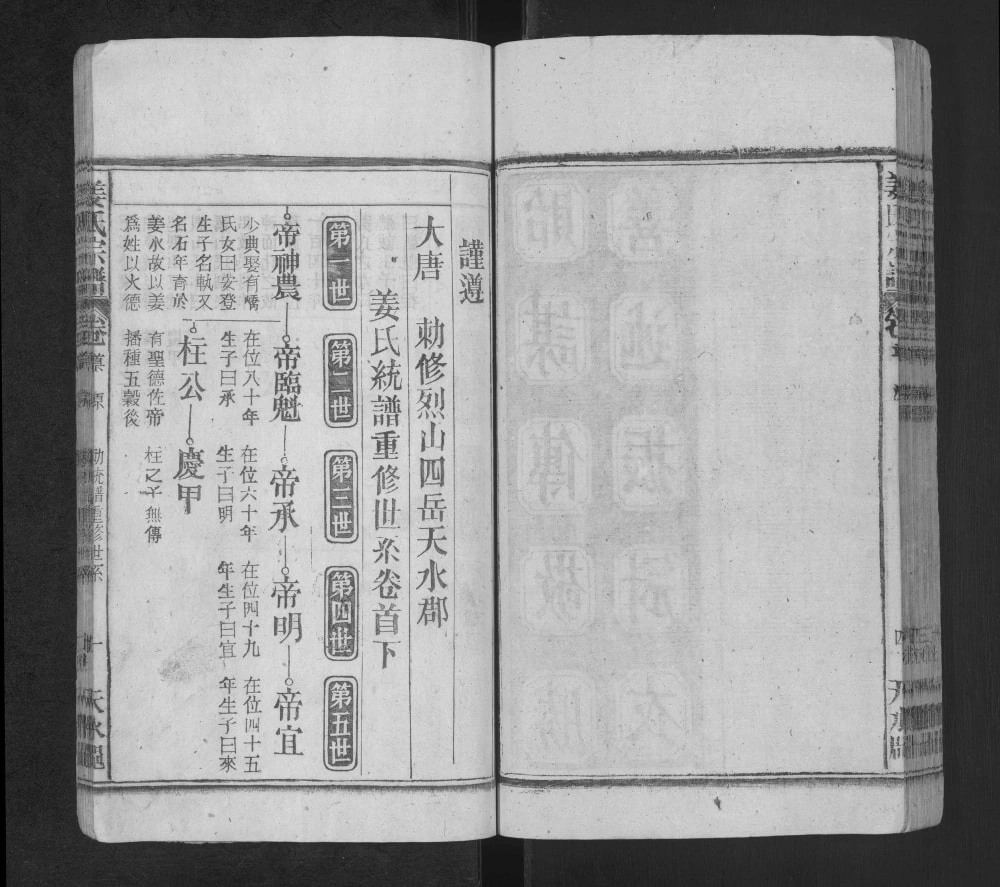 謹遵
大唐 勅修烈山四岳天水郡
姜氏統譜重修世系卷首下
第一世
第二世
第三世
第四世
第五世
帝神農
帝臨魁
帝承
帝明
帝宜
少典娶有嬌
氏女曰安登
生子名軌又
名石年育於
姜水故以姜
爲姓以火德
在位八十年
生子曰承
在位六十年
生子曰明
在位四十九
年生子曰宜
在位四十五
年生子曰來
柱公
慶甲
有聖德佐帝
播種五穀後
柱之子無傳
姜氏宗譜
天水